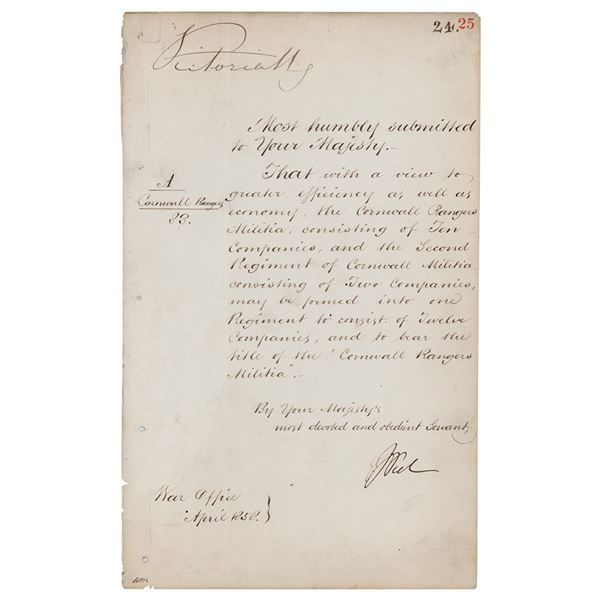 24. 25
Victoria R
Most humbly submitted
to Your Majesty.—
A
Cornwall Rangers
23.
That with a view to
greater efficiency as well as
economy, the Cornwall Rangers
Militia, consisting of Ten
Companies, and the Second
Regiment of Cornwall Militia
consisting of Two Companies,
may be formed into one
Regiment to consist of Twelve
Companies, and to bear the
title of the "Cornwall Rangers
Militia".—
By Your Majesty's
most devoted and obedient Servant,
JPeel
War Office
April 1858.